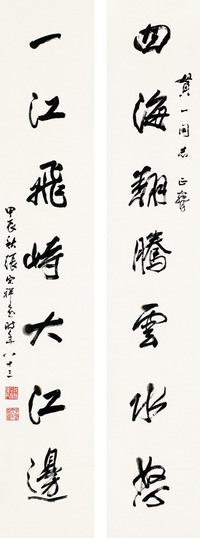 一同志 正
四海翻騰雲水怒
一江飛峙大江邊
甲辰秋張宗祥書時年八十三